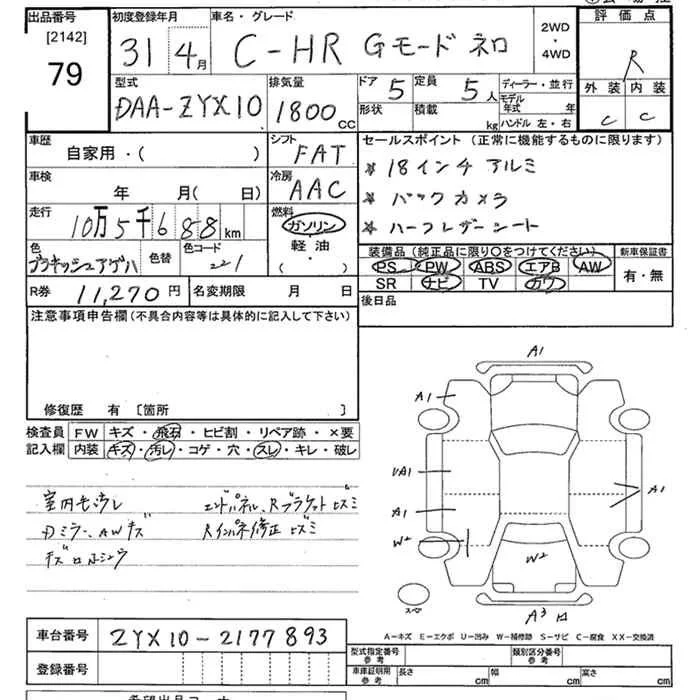 出品番号 初度登録年月 車名・グレード 評価点
[2142]
79
31 4月 C-HR Gモード ネロ 2WD・4WD R
外装 内装
C C
型式 排気量 ドア 5 定員 5人 ディーラー・並行
DAA-ZYX10 1800cc 形状 積載 kg モデル年式 年
ハンドル 左・右
車歴 シフト セールスポイント (正常に機能するものに限ります)
自家用・( ) FAT
* 18インチ アルミ
車検 冷房
年 月(日) AAC
* バックカメラ
走行 燃料
10万5千688km ガソリン
* ハーフレザーシート
軽油・( )
色 色替 色コード 221
装備品(純正品に限り○をつけてください) 新車保証書
PS PW ABS エアB AW 有・無
SR ナビ TV カワ
R券 11,270円 名変期限 月 日
後日品
注意事項申告欄(不具合内容等は具体的に記入して下さい)
修復歴 有 〔箇所 〕
検査員 FW キズ・飛石・ヒビ割・リペア跡・×要
記入欄 内装 キズ・汚レ・コゲ・穴・スレ・キレ・破レ
室内キズ汚レ エンドパネル、Rブラケットヒズミ
Dミラー、AWキズ Rインパネ修正ヒズミ
A1
A1
UA1
A1
W2
W2
A1
スペア
A3
A-キズ E-エクボ U-凹み W-補修跡 S-サビ C-腐食 XX-交換済
車台番号 ZYX10-2177893
登録番号
型式指定番号 参考 類別区分番号 参考
車庫証明用 参考 長さ cm 幅 cm 高さ cm